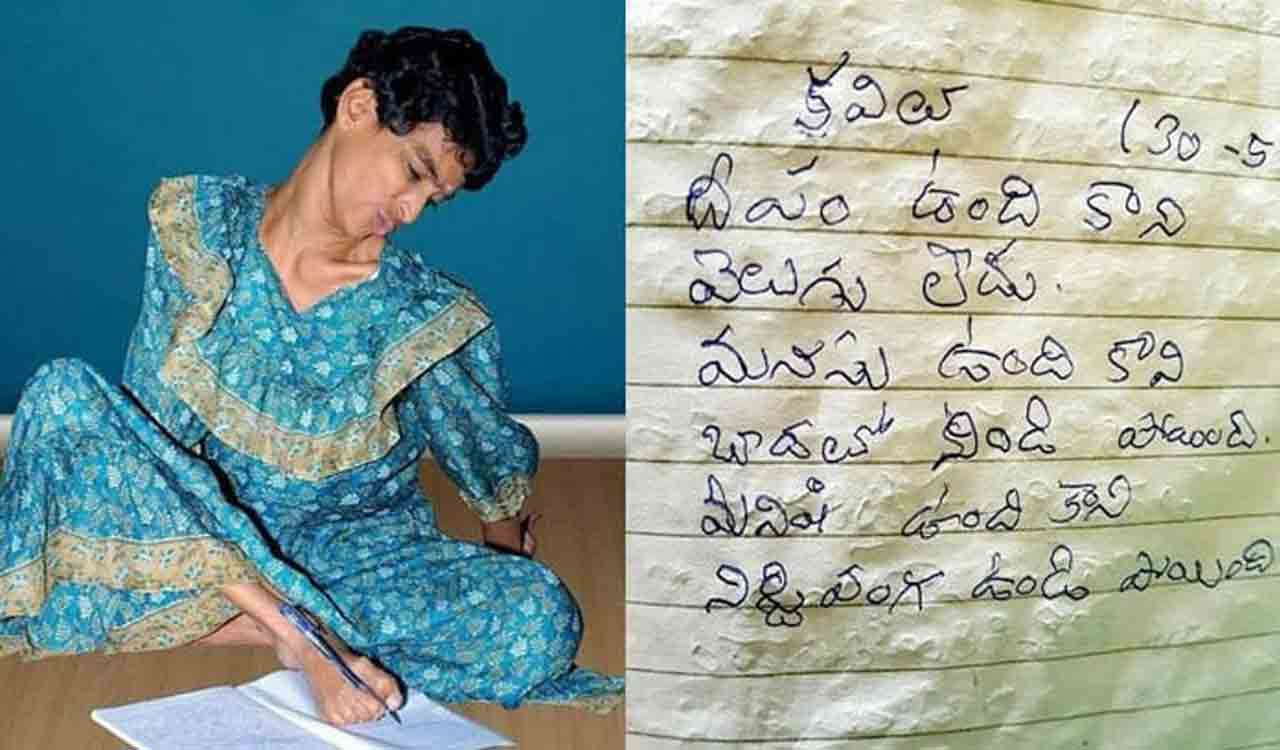 క్రవిలు (30 -5
దీపం ఉంది కాని
వెలుగు లేదు.
మనసు ఉంది కాని
బాదలో నిండి పోయింది.
మనిషి ఉంది కాని
ఉండి పోయింది